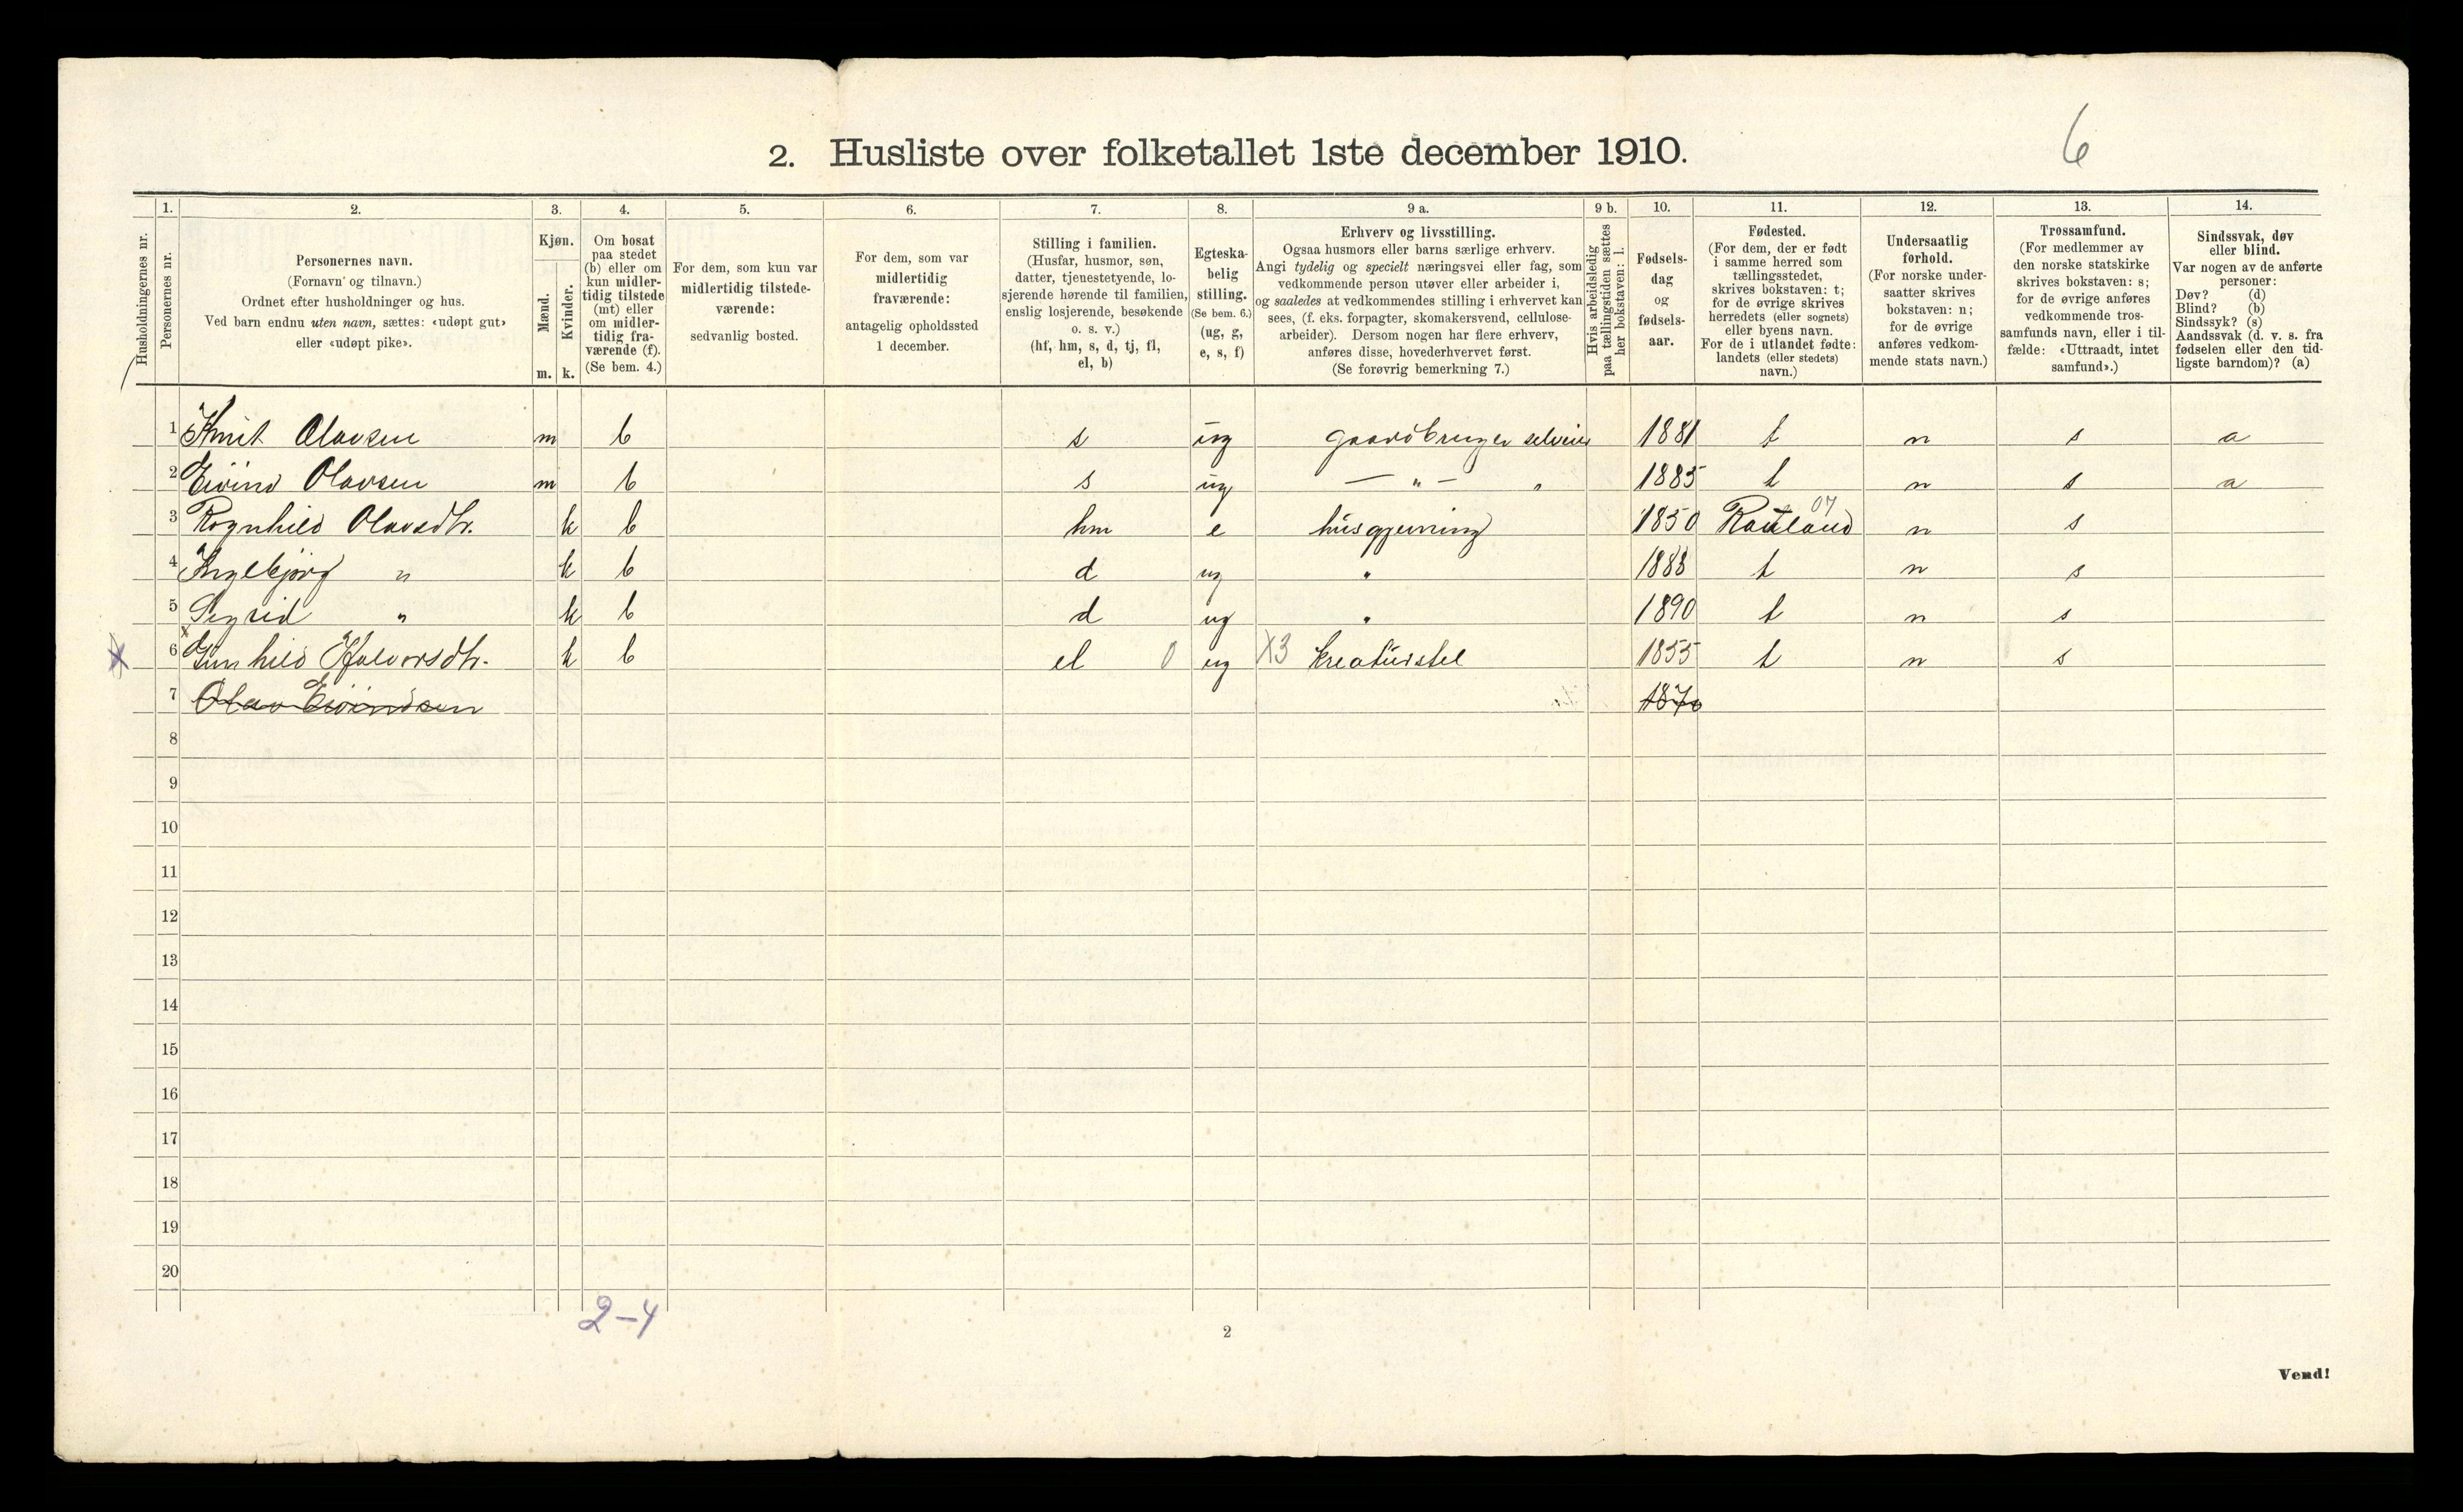 6
2. Husliste over folketallet 1ste december 1910.
Husholdningernes nr.
1.
Personernes nr.
2.
Personernes navn.
(Fornavn og tilnavn.)
Ordnet efter husholdninger og hus.
Ved barn endnu uten navn, sættes: «udøpt gut»
eller «udøpt pike».
3.
Kjøn.
Mænd.
Kvinder.
m. k.
4.
Om bosat
paa stedet
(b) eller om
kun midler-
tidig tilstede
(mt) eller
om midler-
tidig fra-
værende (f).
(Se bem. 4.)
5.
For dem, som kun var
midlertidig tilstede-
værende:
sedvanlig bosted.
6.
For dem, som var
midlertidig
fraværende:
antagelig opholdssted
1 december.
7.
Stilling i familien.
(Husfar, husmor, søn,
datter, tjenestetyende, lo-
sjerende hørende til familien,
enslig losjerende, besøkende
o. s. v.)
(hf, hm, s, d, tj, fl,
el, b)
8.
Egteska-
belig
stilling.
(Se bem. 6.)
(ug, g,
e, s, f)
9 a.
Erhverv og livsstilling.
Ogsaa husmors eller barns særlige erhverv.
Angi tydelig og specielt næringsvei eller fag, som
vedkommende person utøver eller arbeider i,
og saaledes at vedkommendes stilling i erhvervet kan
sees, (f. eks. forpagter, skomakersvend, cellulose-
arbeider). Dersom nogen har flere erhverv,
anføres disse, hovederhvervet først.
(Se forøvrig bemerkning 7.)
9 b.
Hvis arbeidsledig
paa tællingstiden sættes
her bokstaven: l.
10.
Fødsels-
dag
og
fødsels-
aar.
11.
Fødested.
(For dem, der er født
i samme herred som
tællingsstedet,
skrives bokstaven: t;
for de øvrige skrives
herredets (eller sognets)
eller byens navn.
For de i utlandet fødte:
landets (eller stedets)
navn.)
12.
Undersaatlig
forhold.
(For norske under-
saatter skrives
bokstaven: n;
for de øvrige
anføres vedkom-
mende stats navn.)
13.
Trossamfund.
(For medlemmer av
den norske statskirke
skrives bokstaven: s;
for de øvrige anføres
vedkommende tros-
samfunds navn, eller i til-
fælde: «Uttraadt, intet
samfund».)
14.
Sindssvak, døv
eller blind.
Var nogen av de anførte
personer:
Døv? (d)
Blind? (b)
Sindssyk? (s)
Aandssvak (d. v. s. fra
fødselen eller den tid-
ligste barndom)? (a)
1 Knut Olavsen m b s ug gaardbruger selveier 1881 t n s a
2 Eivind Olavsen m b s ug — " — " 1885 t n s a
3 Rognhild Olavsdtr. k b hm e husgjerning 1850 Rauland 07 n s
4 Ingebjørg " k b d ug " 1888 t n s
5 Sigrid " k b d ug " 1890 t n s
x 6 Gunhild Halvorsdtr. k b el 0 ug X3 kreaturstel 1855 t n s
7 Olav Eivindsen 1870
8
9
10
11
12
13
14
15
16
17
18
19
20
2-4
2
Vend!